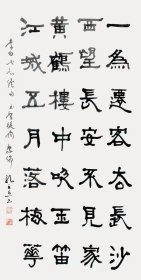 一為遷客去長沙
西望長安不見家
黃鶴樓中吹玉笛
江城五月落梅華